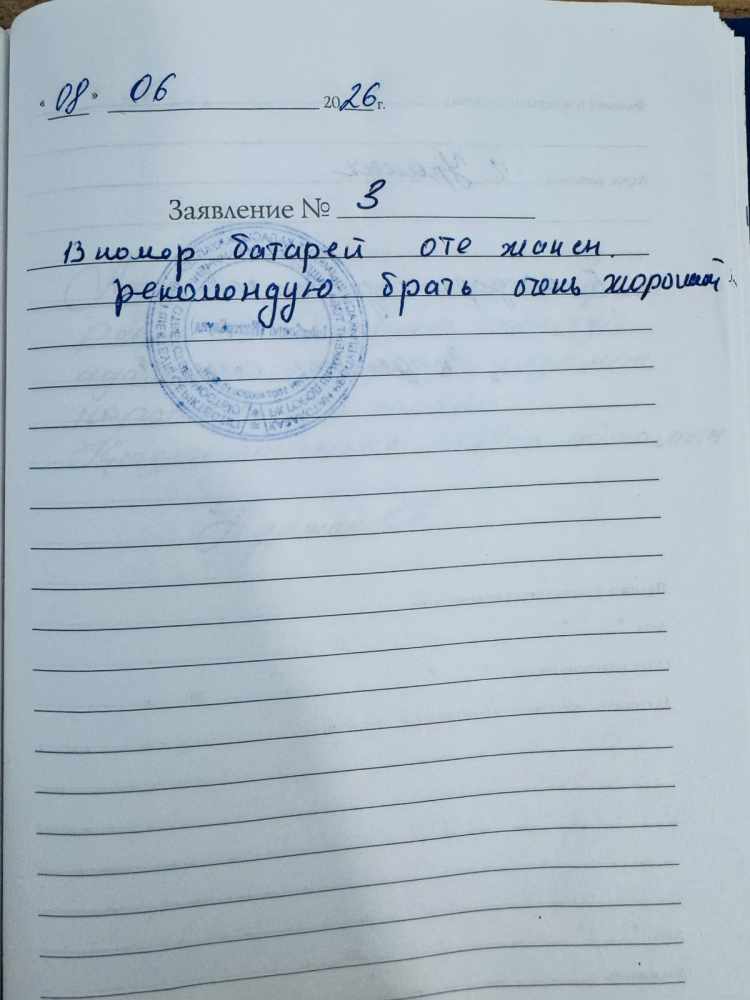 «08» 06 2026 г.
Заявление № 3
13 номор батарей оте жакен.
рекомондую брать очень жороший